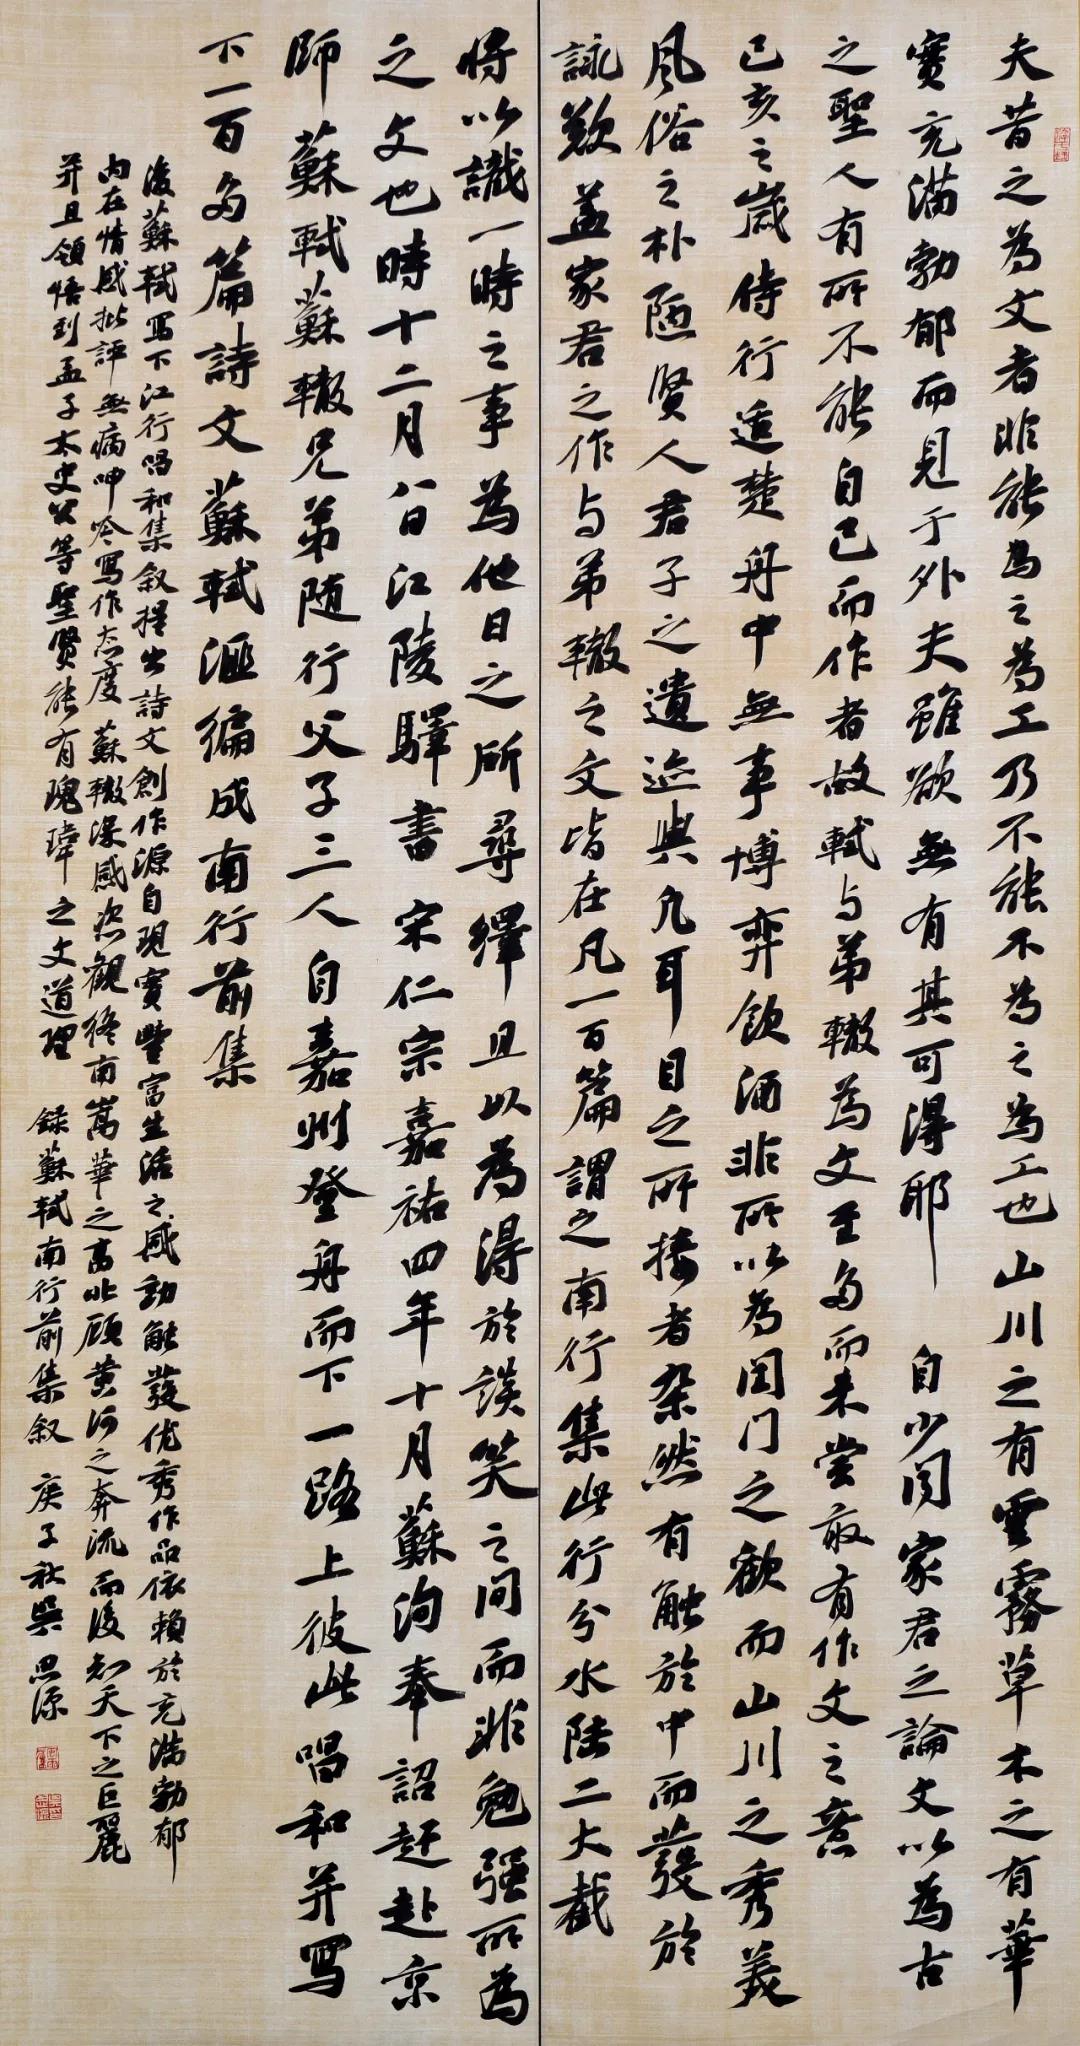 夫昔之为文者非能為之為工乃不能不为之为工也山川之有雲霧草木之有華
實充满勃郁而見于外夫雖欲無有其可得耶 自少闻家君之論文以為古
之聖人有所不能自已而作者故軾与弟轍為文至多而未尝敢有作文之意
己亥之嵗侍行适楚舟中無事博弈飲酒非所以为闺门之歡而山川之秀美
風俗之朴陋贤人君子之遺迹與凡耳目之所接者杂然有触於中而發於
詠歎盖家君之作与弟轍之文皆在凡一百篇謂之南行集此行分水陆二大截
將以識一時之事為他日之所尋繹且以為得於談笑之间而非勉强所為
之文也時十二月八日江陵驛書 宋仁宗嘉祐四年十月蘇洵奉詔赶赴京
師蘇軾蘇轍兄弟随行父子三人自嘉州登舟而下一路上彼此唱和并写
下一百多篇詩文蘇軾滙编成南行前集
後蘇軾写下江行唱和集叙提出詩文創作源自現實豐富生活之感動触發优秀作品依賴於充满勃郁
内在情感批評無病呻吟写作态度蘇轍深感恣觀终南嵩華之高北顾黄河之奔流而後知天下之巨麗
并且领悟到孟子太史公等聖贤能有瑰瑋之文道理 録蘇軾南行前集叙 庚子秋吳思源